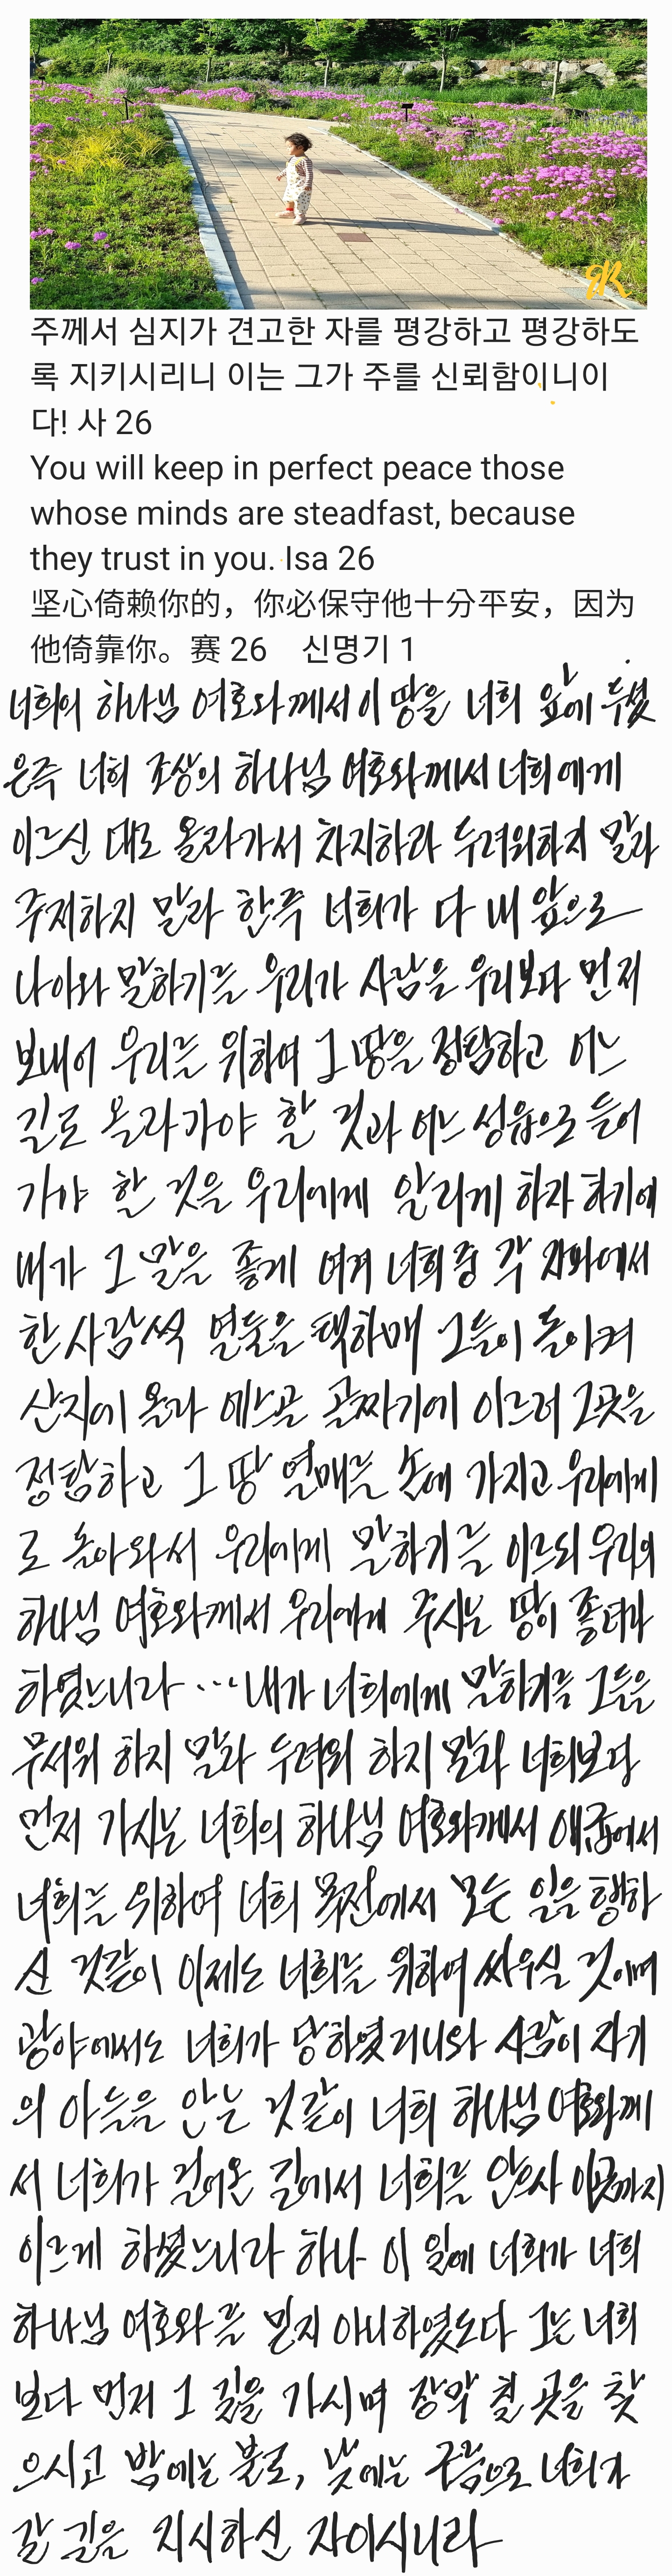 주께서 심지가 견고한 자를 평강하고 평강하도
록 지키시리니 이는 그가 주를 신뢰함이니이
다! 사 26
You will keep in perfect peace those
whose minds are steadfast, because
they trust in you. Isa 26
坚心倚赖你的，你必保守他十分平安，因为
他倚靠你。赛 26 신명기 1
너희의 하나님 여호와께서 이 땅을 너희 앞에 두셨
은즉 너희 조상의 하나님 여호와께서 너희에게
이르신 대로 올라가서 차지하라 두려워하지 말라
주저하지 말라 한즉 너희가 다 내 앞으로
나아와 말하기를 우리가 사람을 우리보다 먼저
보내어 우리를 위하여 그 땅을 정탐하고 어느
길로 올라가야 할 것과 어느 성읍으로 들어
가야 할 것을 우리에게 알리게 하자 하기에
내가 그 말을 좋게 여겨 너희 중 각 지파에서
한 사람씩 열둘을 택하매 그들이 돌이켜
산지에 올라 에스골 골짜기에 이르러 그곳을
정탐하고 그 땅 열매를 손에 가지고 우리에게
로 돌아와서 우리에게 말하기를 이르되 우리의
하나님 여호와께서 우리에게 주시는 땅이 좋더라
하였느니라 ··· 내가 너희에게 말하기를 그들을
무서워 하지 말라 두려워 하지 말라 너희보다
먼저 가시는 너희의 하나님 여호와께서 애굽에서
너희를 위하여 너희 목전에서 모든 일을 행하
신 것같이 이제도 너희를 위하여 싸우실 것이며
광야에서도 너희가 당하였거니와 사람이 자기
의 아들을 안는 것같이 너희 하나님 여호와께
서 너희가 걸어온 길에서 너희를 안으사 이곳까지
이르게 하셨느니라 하나 이 일에 너희가 너희
하나님 여호와를 믿지 아니하였도다 그는 너희
보다 먼저 그 길을 가시며 장막 칠 곳을 찾
으시고 밤에는 불로, 낮에는 구름으로 너희가
갈 길을 지시하신 자이시니라